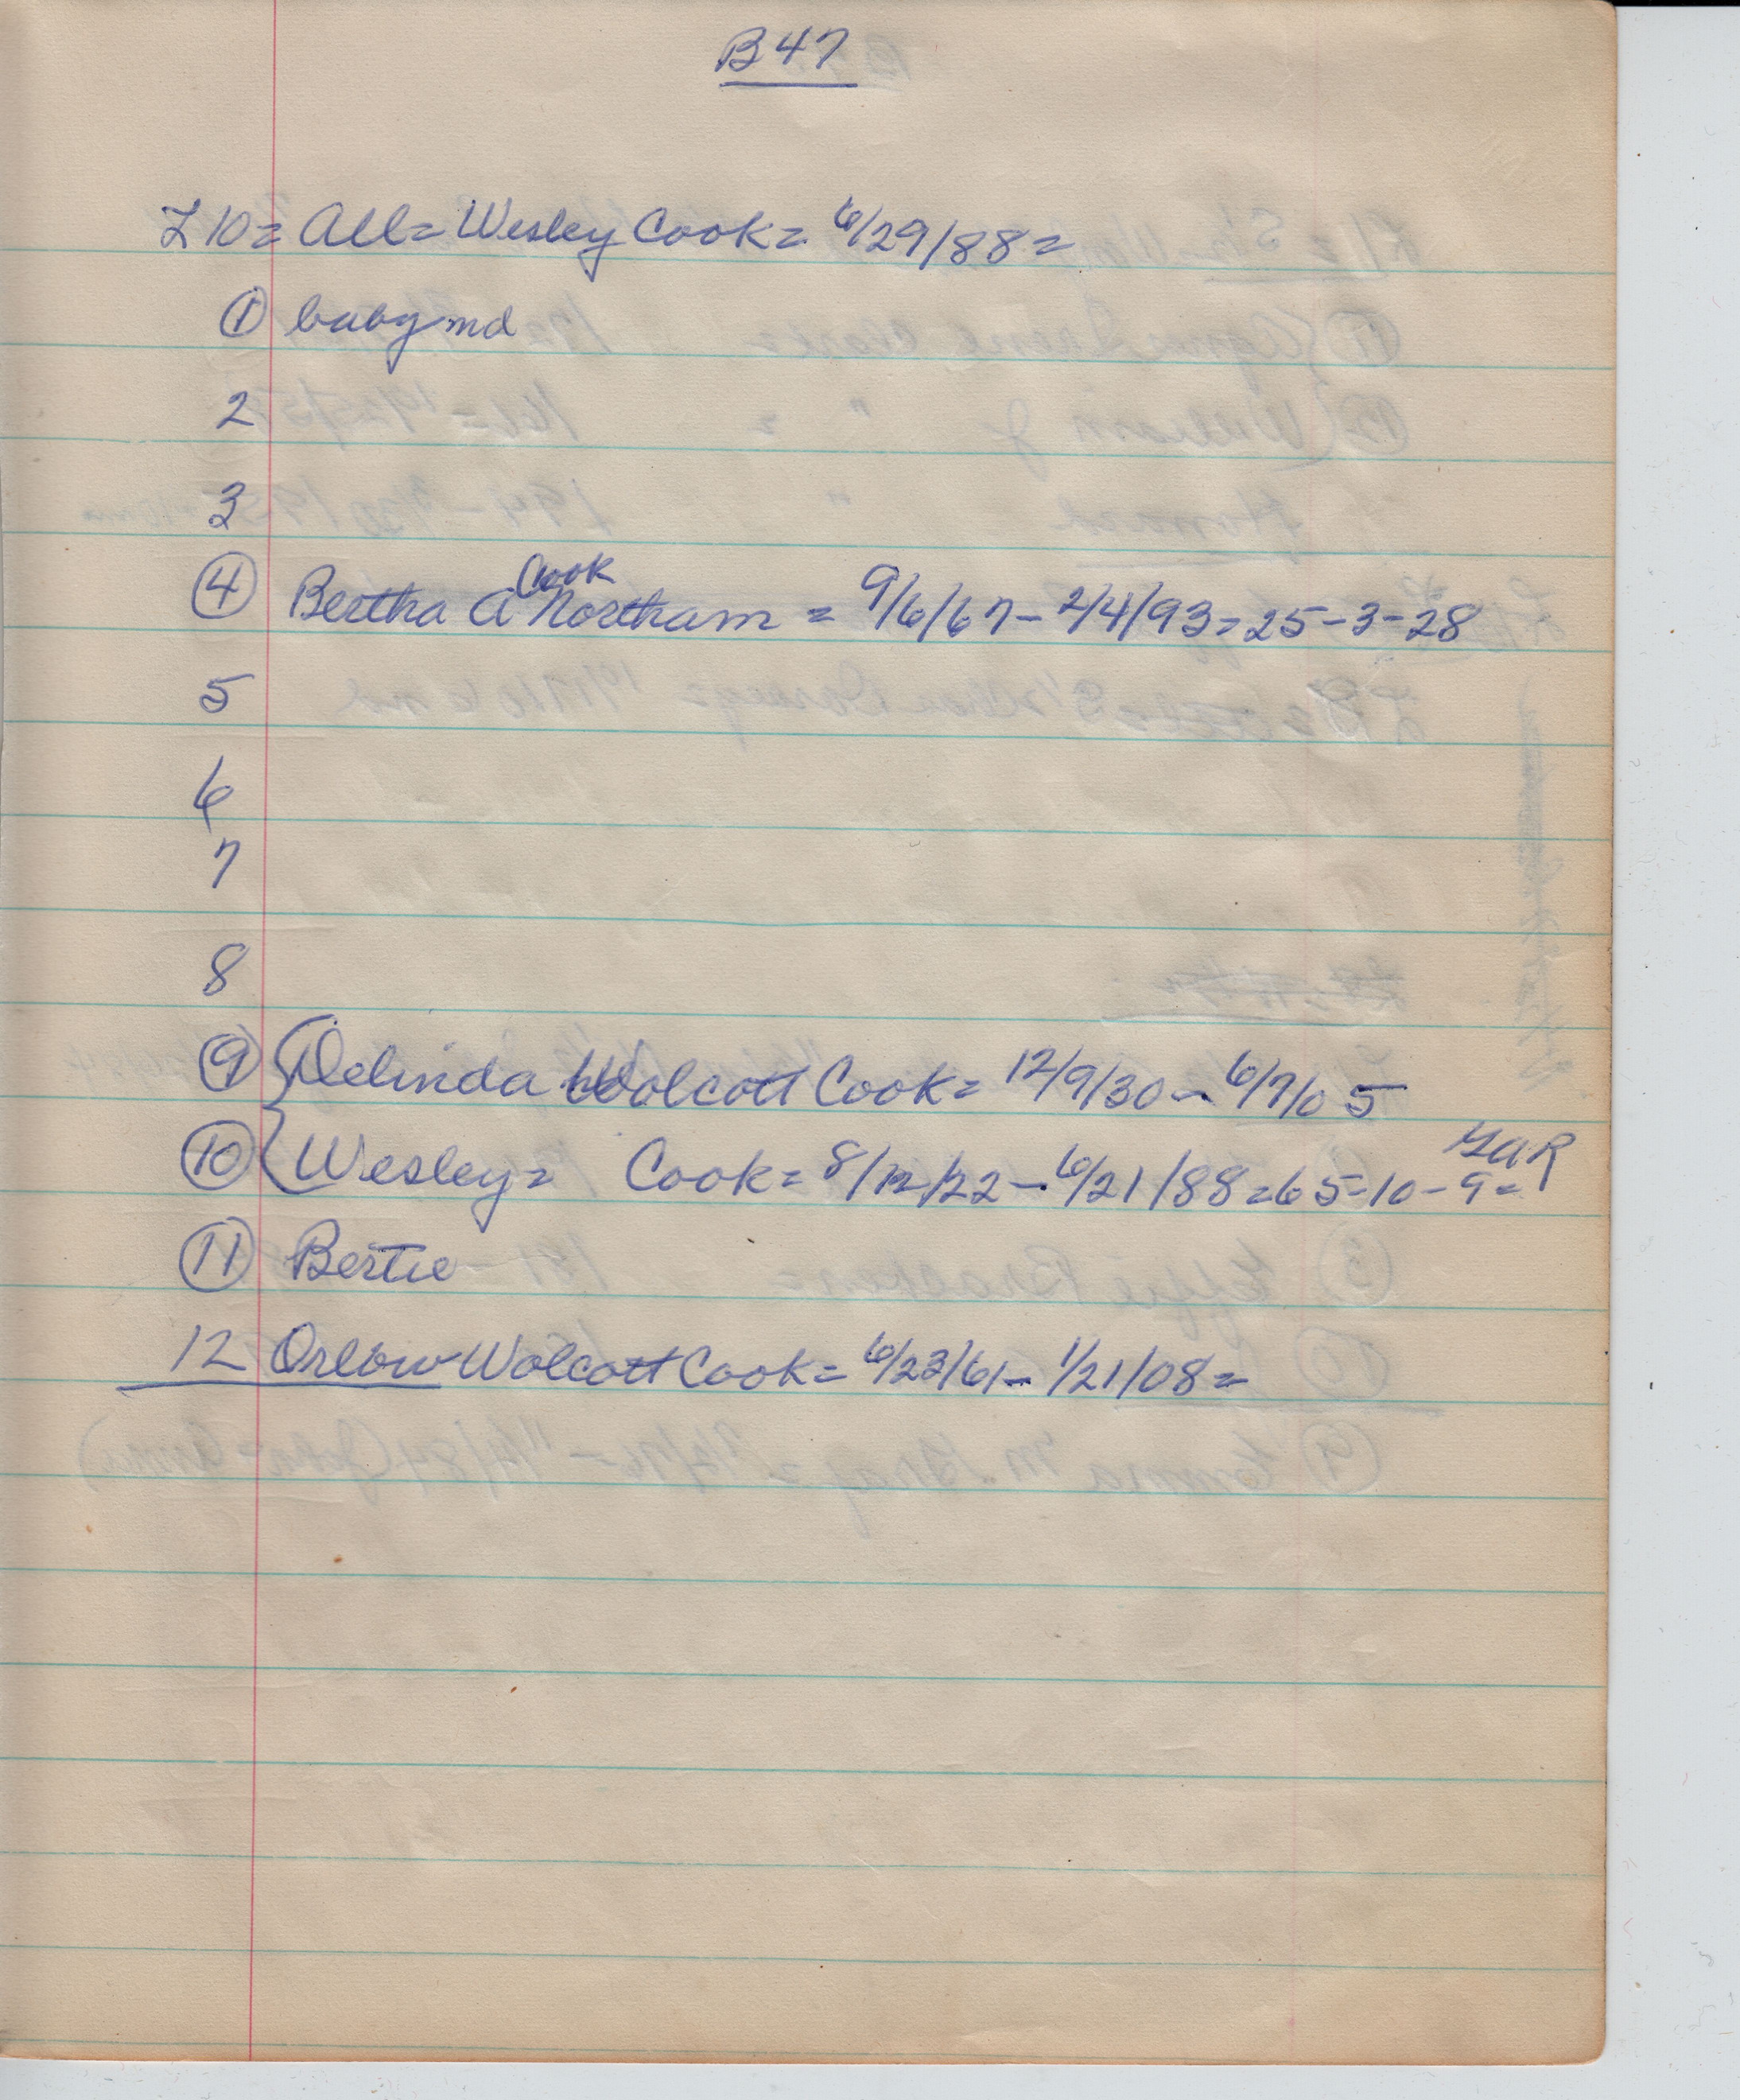 B47
L10= All= Wesley Cook= 6/29/88=
① baby nd
2
3
④ Bertha A Cook Northam = 9/6/67- 2/4/93=25-3-28
5
6
7
8
⑨ Delinda Wolcott Cook= 12/9/30- 6/7/05
⑩ Wesley= Cook= 8/12/22-6/21/88=65-10-9= GAR
⑪ Bertie
12 Orlow Wolcott Cook= 6/23/61- 1/21/08=